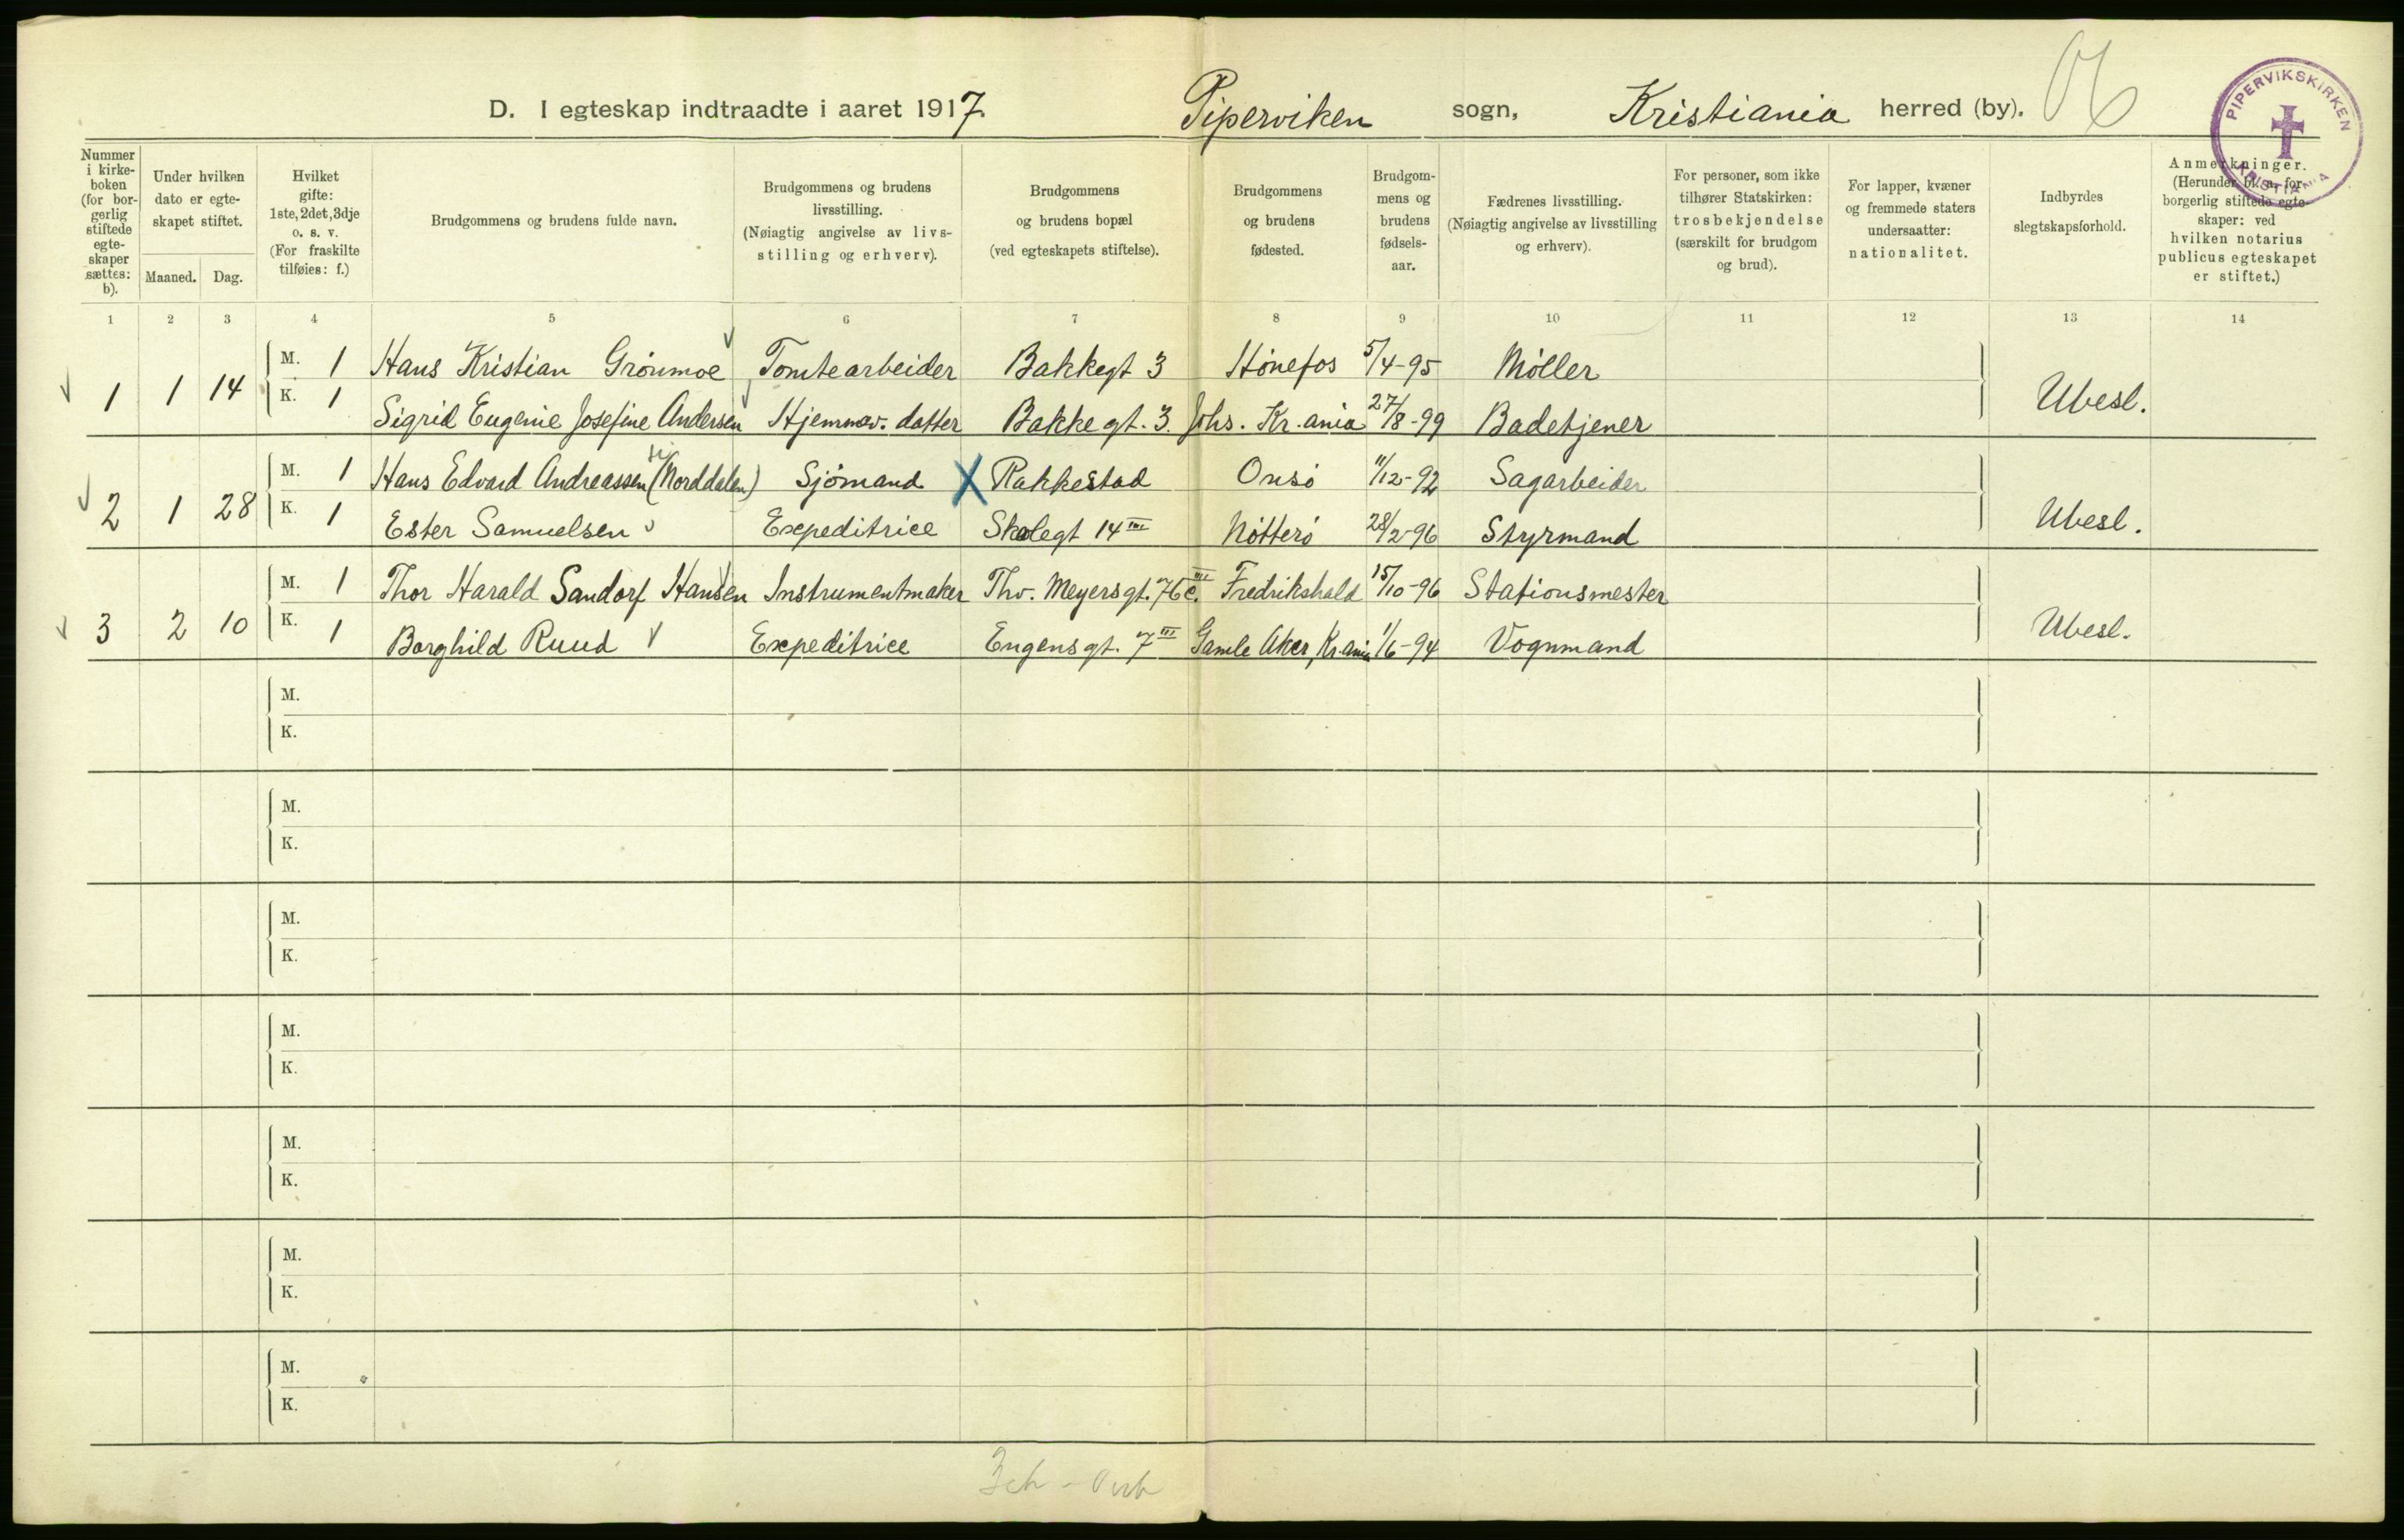 D. I egteskap indtraadte i aaret 1917. Piperviken sogn, Kristiania herred (by).
PIPERVIKSKIRKEN KRISTIANIA
Nummer i kirke-boken (for bor-gerlig stiftede egte-skaper sættes: b).
Under hvilken dato er egte-skapet stiftet.
Maaned. Dag.
Hvilket gifte: 1ste, 2det, 3dje o. s. v. (For fraskilte tilføies: f.)
Brudgommens og brudens fulde navn.
Brudgommens og brudens livsstilling. (Nøiagtig angivelse av livs-stilling og erhverv).
Brudgommens og brudens bopæl (ved egteskapets stiftelse).
Brudgommens og brudens fødested.
Brudgom-mens og brudens fødsels-aar.
Fædrenes livsstilling. (Nøiagtig angivelse av livsstilling og erhverv).
For personer, som ikke tilhører Statskirken: trosbekjendelse (særskilt for brudgom og brud).
For lapper, kvæner og fremmede staters undersaatter: nationalitet.
Indbyrdes slegtskapsforhold.
Anmerkninger. (Herunder bl. a. for borgerlig stiftede egte-skaper: ved hvilken notarius publicus egteskapet er stiftet.)
1 2 3 4 5 6 7 8 9 10 11 12 13 14
M. 1 Hans Kristian Grönmoe Tomtearbeider Bakkegt 3 Hönefos 5/4-95 Möller
1 1 14 Ubesl.
K. 1 Sigrid Eugenie Josefine Andersen Hjemmev. datter Bakkegt. 3. Johs. Kr.ania 27/8-99 Badetjener
M. 1 Hans Edvard Andreassen (Norddalen) Sjömand X Rakkestad Onsö 11/12-92 Sagarbeider
2 1 28 Ubesl.
K. 1 Ester Samuelsen Expeditrice Skolegt 14 III Nötterö 28/2-96 Styrmand
M. 1 Thor Harald Sandorf Hansen Instrumentmaker Thv. Meyersgt. 76 c. III Fredrikshald 15/10-96 Stationsmester
3 2 10 Ubesl.
K. 1 Borghild Ruud Expeditrice Engensgt. 7 III Gamle Aker, Kr.ania 1/6-94 Vognmand
M.
K.
M.
K.
M.
K.
M.
K.
M.
K.
M.
K.
M.
K.